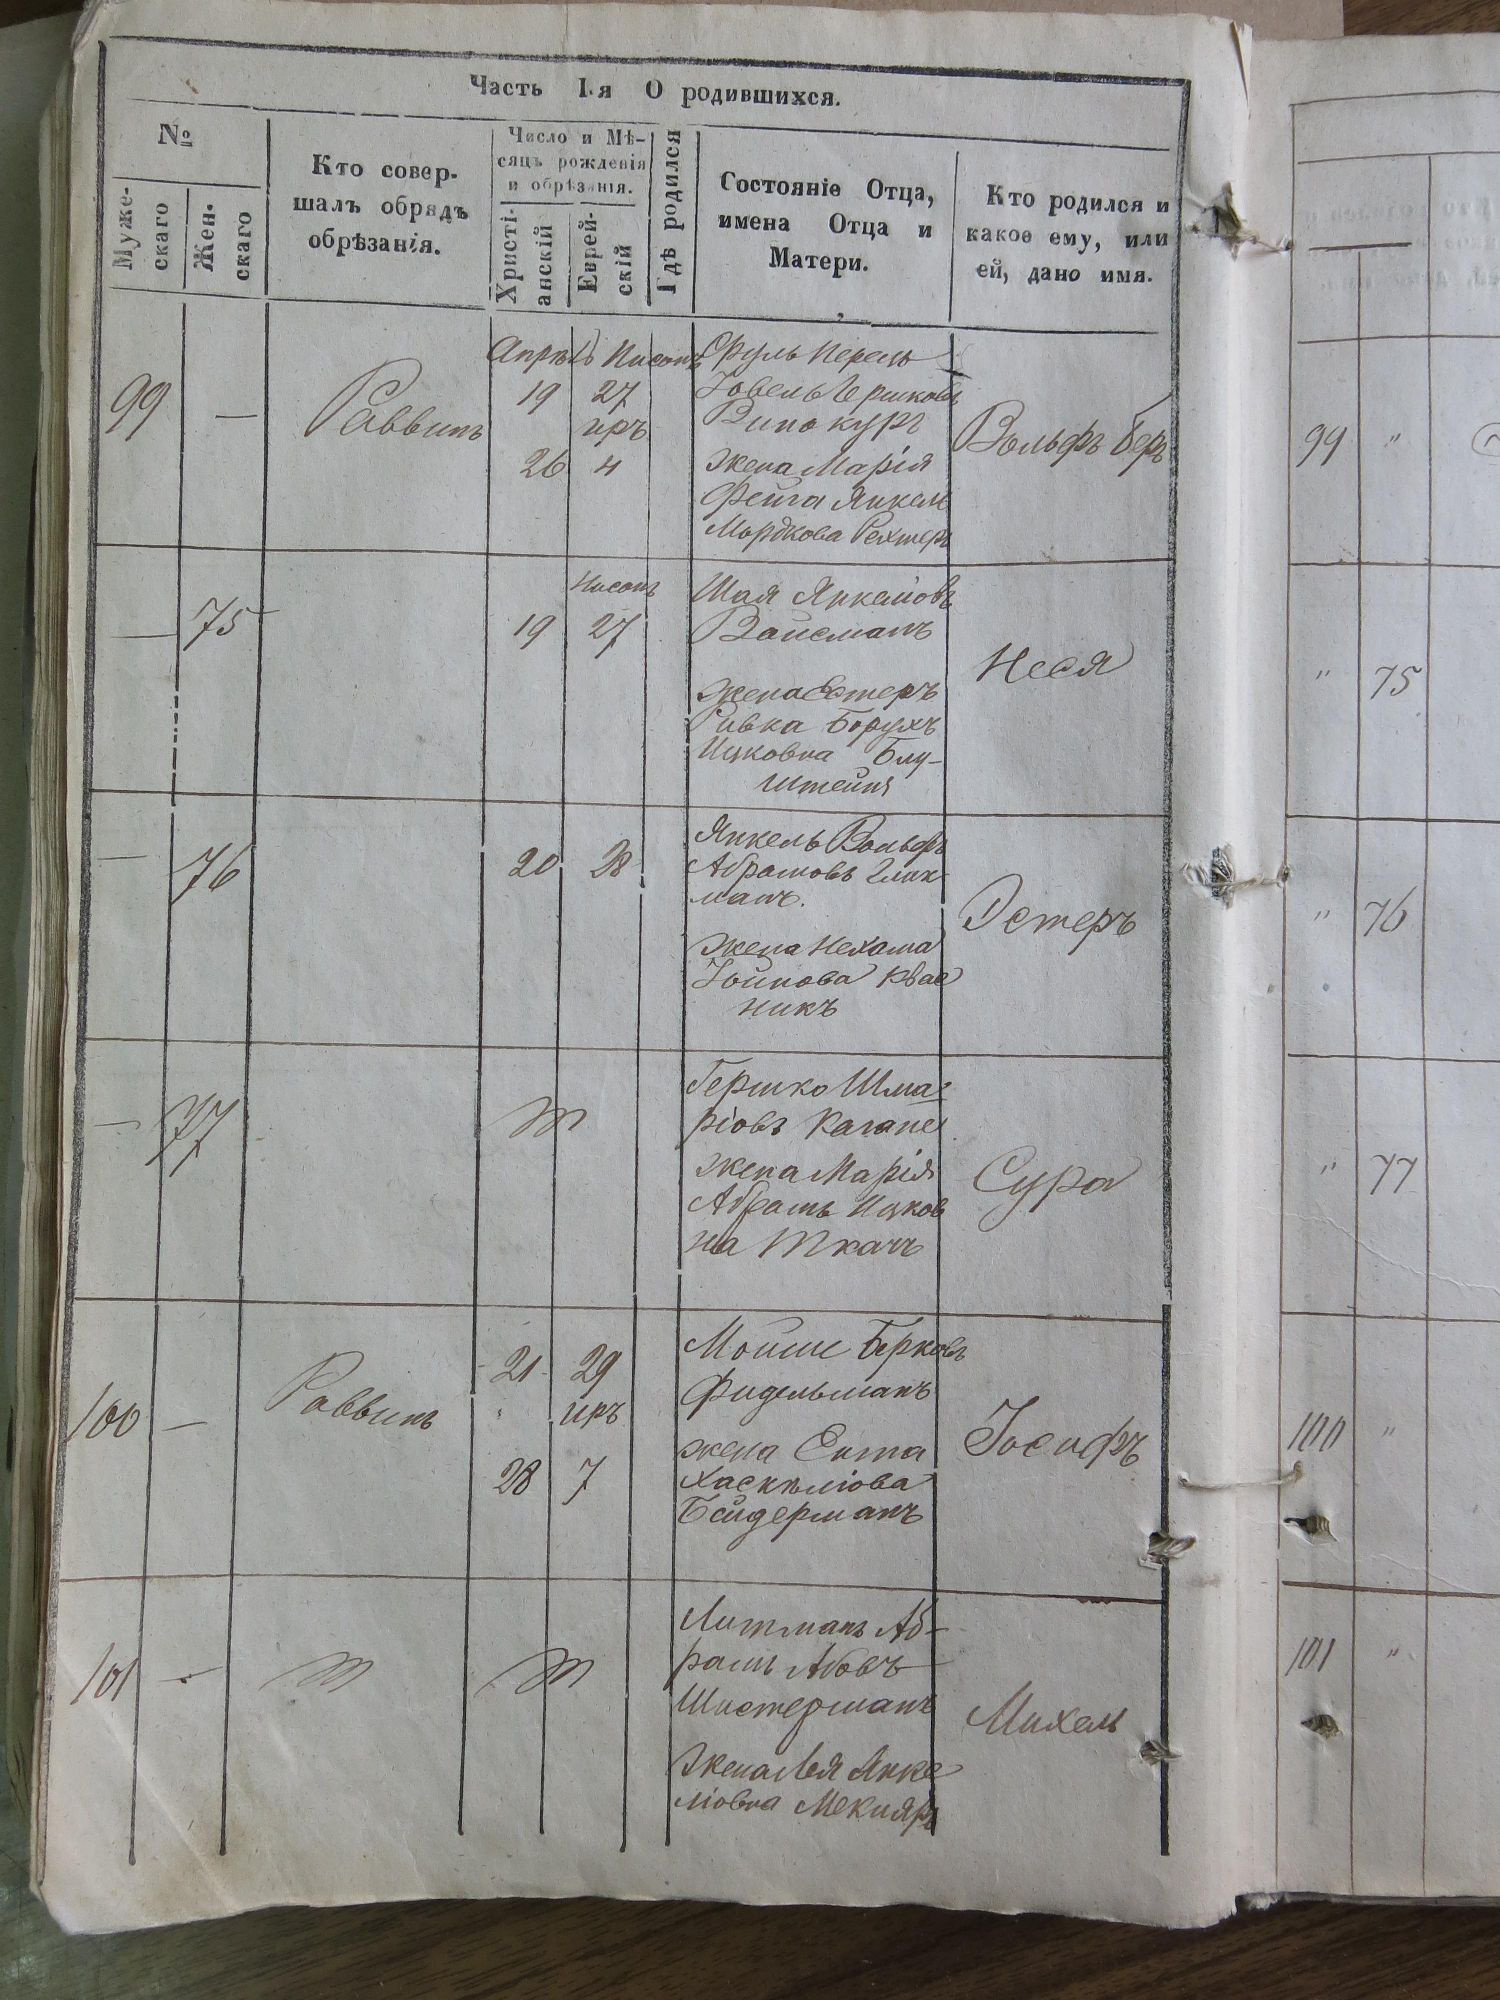 Часть I.я О родившихся.
№
Муже-
скаго
Жен-
скаго
Кто совер-
шалъ обрядъ
обрѣзанія.
Число и Мѣ-
сяцъ рожденія
и обрѣзанія.
Христі-
анскій
Еврей-
скій
Гдѣ родился
Состояніе Отца,
имена Отца и
Матери.
Кто родился и
какое ему, или
ей, дано имя.
99 — Раввинъ
Апрѣль Нисонъ
19 27
иръ
26 4
Сруль Перецъ
Іовель Гершковъ
Винокуръ
жена Марія
Фейга Янкель
Мордкова Рехтеръ
Вольфъ Беръ
— 75
Нисонъ
19 27
Шая Янкелювъ
Вайсманъ
жена Естеръ
Ривка Борухъ
Ицковна Блу-
штейнъ
Неся
— 76
20 28
Янкель Вольфъ
Абрамовъ Глик
манъ.
жена Нехама
Іойнова Квас
никъ
Эстеръ
— 77
Гершко Шма-
ріовъ
жена Марія
Абрамъ Ицков
на Ткачъ
Сура
100 — Раввинъ
21 29
иръ
28 7
Мойше Берковъ
Фидельманъ
жена Ента
Хаскелюва
Бейдерманъ
Іосифъ
101 —
Литманъ Аб-
рамъ
Шистерманъ
жена Лея Янке
люва
Михель
99 "
" 75
" 76
" 77
100 "
101 "